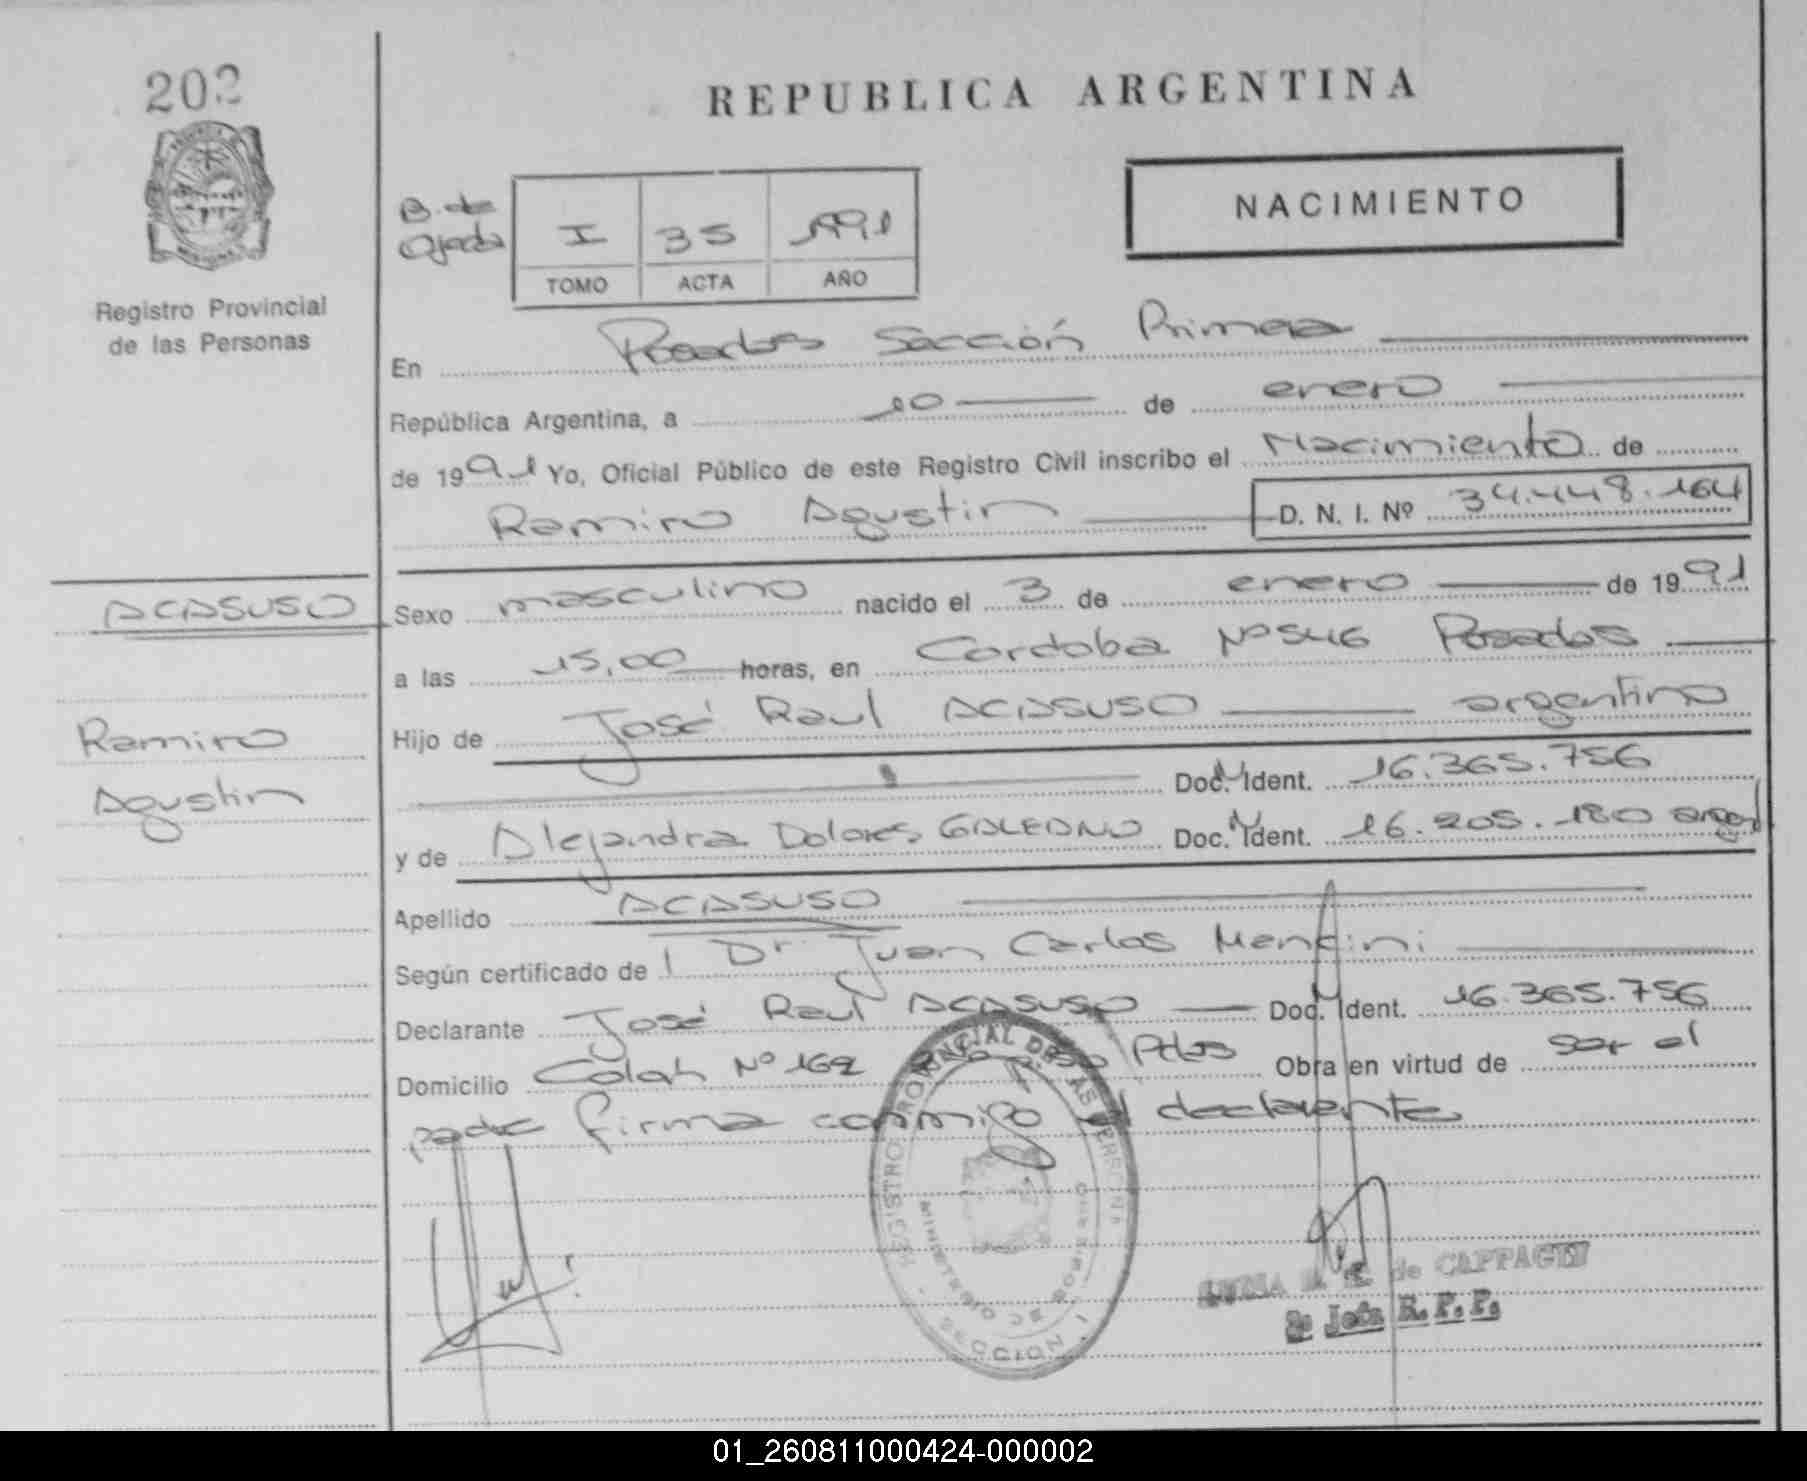 202
REPUBLICA ARGENTINA
NACIMIENTO
B. de
Ojeda
I 35 1991
TOMO ACTA AÑO
Registro Provincial
de las Personas
En Posadas Sección Primera
República Argentina, a 10 de enero
de 1991 Yo, Oficial Público de este Registro Civil inscribo el Nacimiento de
Ramiro Agustin D. N. I. Nº 34.448.164
ACASUSO
Ramiro
Agustin
Sexo masculino nacido el 3 de enero de 1991
a las 15,00 horas, en Cordoba Nº 546 Posadas
Hijo de José Raul ACASUSO argentino
Doc. Ident. 16.365.756
y de Alejandra Dolores GALEANO Doc. Ident. 16.205.180 arg
Apellido ACASUSO
Según certificado de Dr Juan Carlos Mendini
Declarante José Raul ACASUSO Doc. Ident. 16.365.756
Domicilio Colon Nº 162 Pdas Obra en virtud de ser el
padre firma conmigo el declarante
REGISTRO PROVINCIAL DE LAS PERSONAS
MINISTERIO DE GOBIERNO
MISIONES
de CAPPAGLI
2º Jefa R. P. P.
01_260811000424-000002